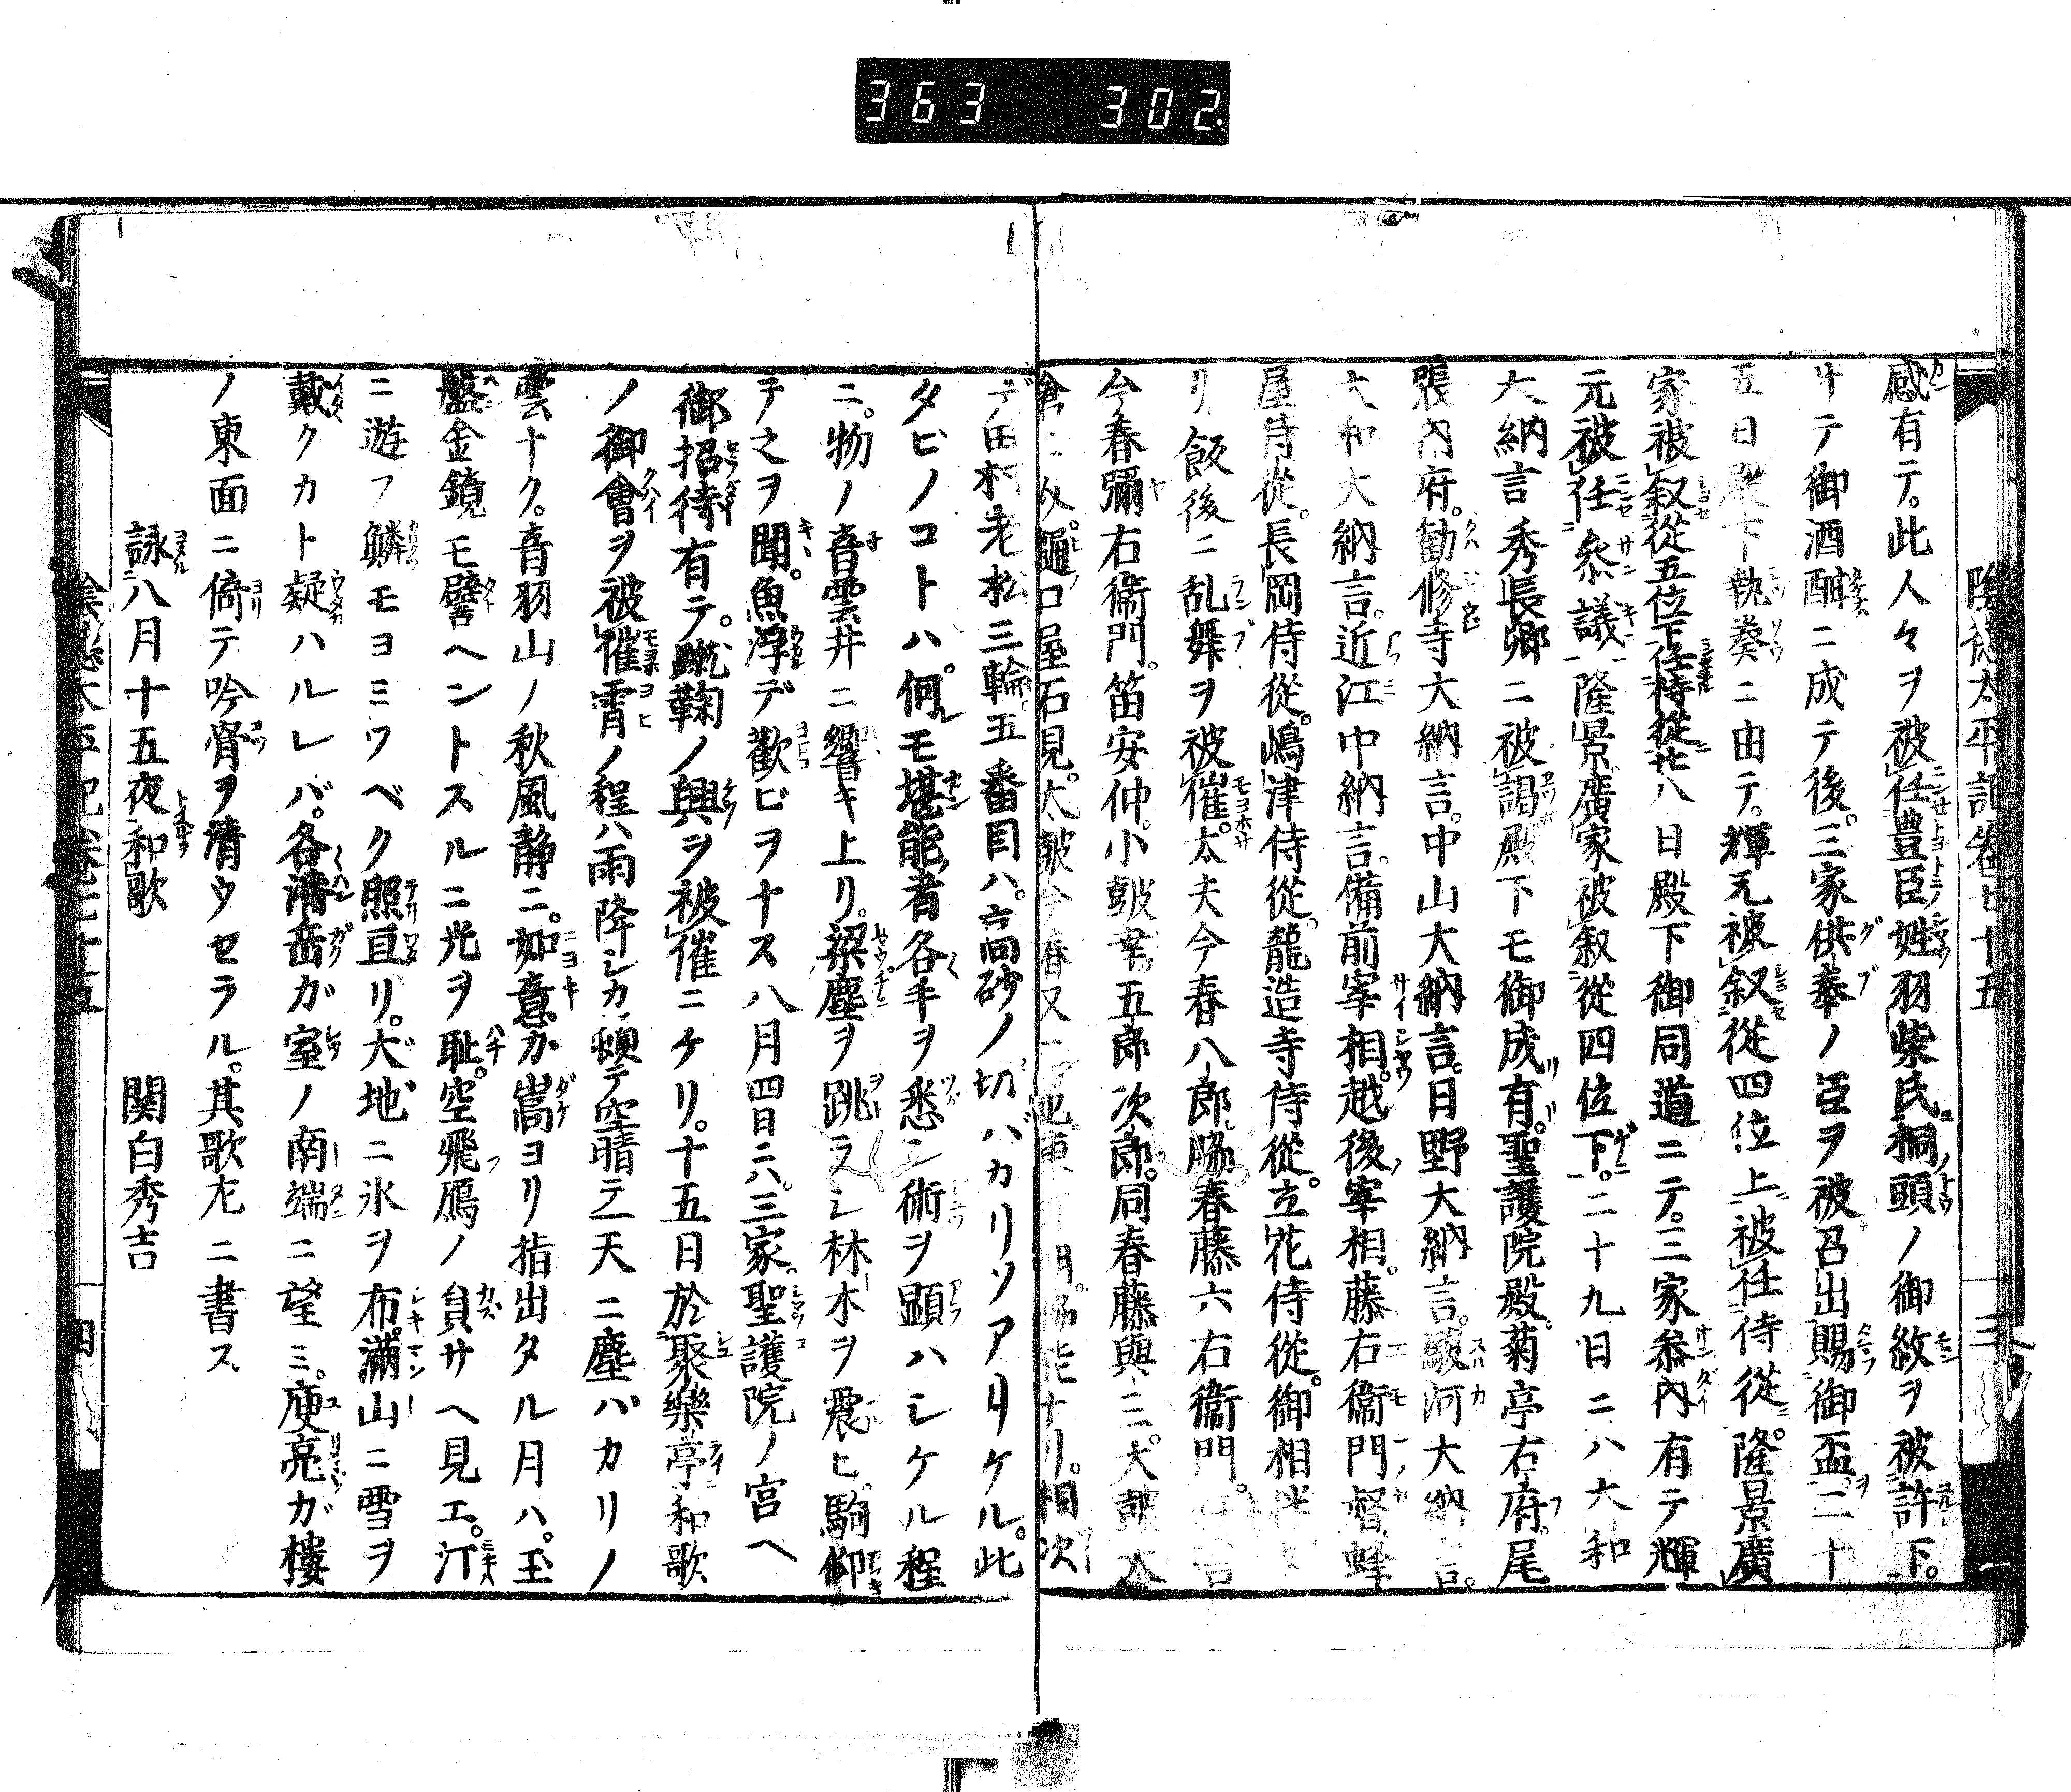 363 302
陰徳太平記巻七十五 三
感有テ。此人々ヲ被任豊臣姓羽柴氏桐頭ノ御紋ヲ被許下。
サテ御酒酣ニ成テ後。三家供奉ノ臣ヲ被召出賜御盃。二十
五日殿下執奏ニ由テ。輝元被叙従四位上被任侍從。隆景廣
家被叙從五位下任侍從廿八日殿下御同道ニテ。三家参内有テ輝
元被任参議隆景廣家被叙從四位下。二十九日ニハ大和
大納言秀長卿ニ被謁殿下モ御成有。聖護院殿。菊亭右府。尾
張内府。勧修寺大納言。中山大納言。日野大納言。駿河大納言。
大和大納言。近江中納言。備前宰相。越後宰相。藤右衞門督。蜂
屋侍從。長岡侍從。嶋津侍從。龍造寺侍從。立花侍從。御相伴
リ飯後ニ乱舞ヲ被催。太夫今春八郎。脇春藤六右衞門。
今春彌右衞門。笛安仲。小皷幸五郎次郎。同春藤與三。大皷
樋口屋石見。太皷今春又 相次
デ田村老松三輪五番目ハ。高砂ノ切バカリソアリケル。此
タビノコトハ。何レモ堪能ノ者各手ヲ悉シ術ヲ顕ハシケル程
ニ。物ノ音雲井ニ響キ上リ。梁塵ヲ跳ラシ林木ヲ震ヒ。駒仰
テ之ヲ聞。魚浮デ歡ビヲナス八月四日ニハ。三家。聖護院ノ宮ヘ
御招待有テ。蹴鞠ノ興ヲ被催ニケリ。十五日於聚樂亭和歌
ノ御會ヲ被催霄ノ程ハ雨降シカ頓テ空晴テ一天ニ塵バカリノ
雲ナク。音羽山ノ秋風静ニ。如意カ嵩ヨリ指出タル月ハ。玉
盤金鏡モ譬ヘントスルニ光ヲ耻。空飛フ鴈ノ員サヘ見エ。汀
ニ遊フ鱗モヨミツベク照亘リ。大地ニ氷ヲ布。滿山ニ雪ヲ
戴クカト疑ハルレバ。各潘岳ガ室ノ南端ニ望ミ。庾亮ガ樓
ノ東面ニ倚テ吟膓ヲ清ウセラル。其歌尤ニ書ス
詠八月十五夜和歌 関白秀吉
陰徳太平記巻七十五 四